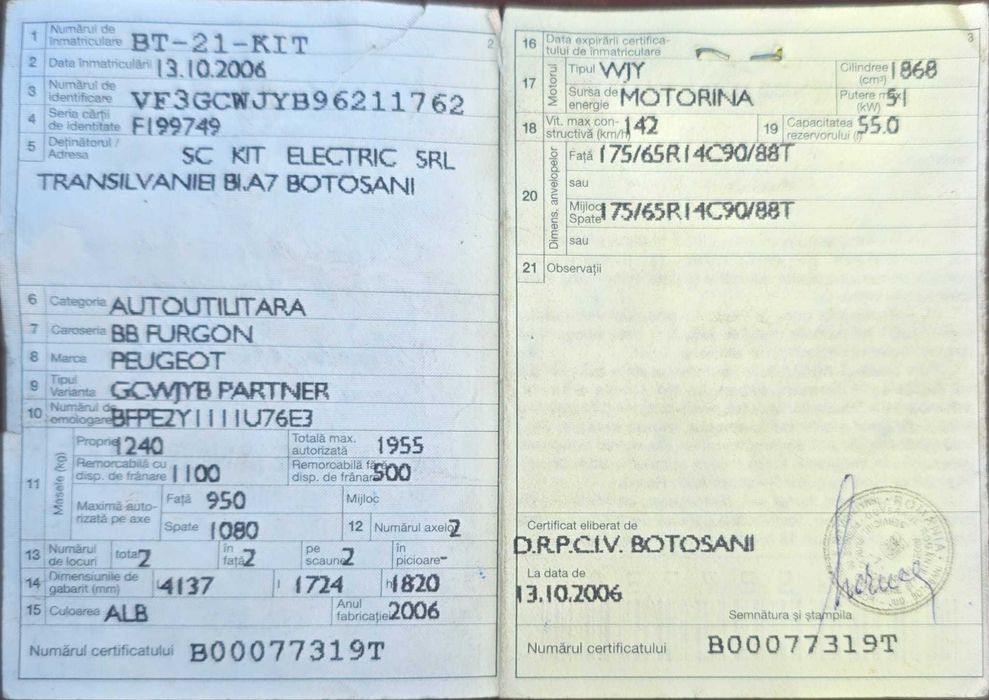 2
1 Numărul de înmatriculare BT-21-KIT
2 Data înmatriculării 13.10.2006
3 Numărul de identificare VF3GCWJYB96211762
4 Seria cărții de identitate F199749
5 Deținătorul / Adresa SC KIT ELECTRIC SRL
TRANSILVANIEI Bl.A7 BOTOSANI
6 Categoria AUTOUTILITARA
7 Caroseria BB FURGON
8 Marca PEUGEOT
9 Tipul Varianta GCWJYB PARTNER
10 Numărul de omologare BFPE2Y1111U76E3
11 Masele (kg)
Proprie 1240 Totală max. autorizată 1955
Remorcabilă cu disp. de frânare 1100 Remorcabilă fără disp. de frânare 500
Maximă autorizată pe axe Față 950 Mijloc
Spate 1080 12 Numărul axelor 2
13 Numărul de locuri total 2 în față 2 pe scaune 2 în picioare -
14 Dimensiunile de gabarit (mm) L 4137 l 1724 h 1820
15 Culoarea ALB Anul fabricației 2006
Numărul certificatului B00077319T
3
16 Data expirării certificatului de înmatriculare
17 Motorul Tipul WJY Cilindree (cm³) 1868
Sursa de energie MOTORINA Putere max (kW) 51
18 Vit. max constructivă (km/h) 142 19 Capacitatea rezervorului (l) 55.0
20 Dimens. anvelopelor
Față 175/65R14C90/88T
sau
Mijloc Spate 175/65R14C90/88T
sau
21 Observații
Certificat eliberat de
D.R.P.C.I.V. BOTOSANI
La data de
13.10.2006
Semnătura și ștampila
Numărul certificatului B00077319T